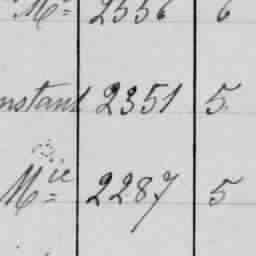 Mᵉ 2556 6
nstant 2351 5
Mie 2287 5